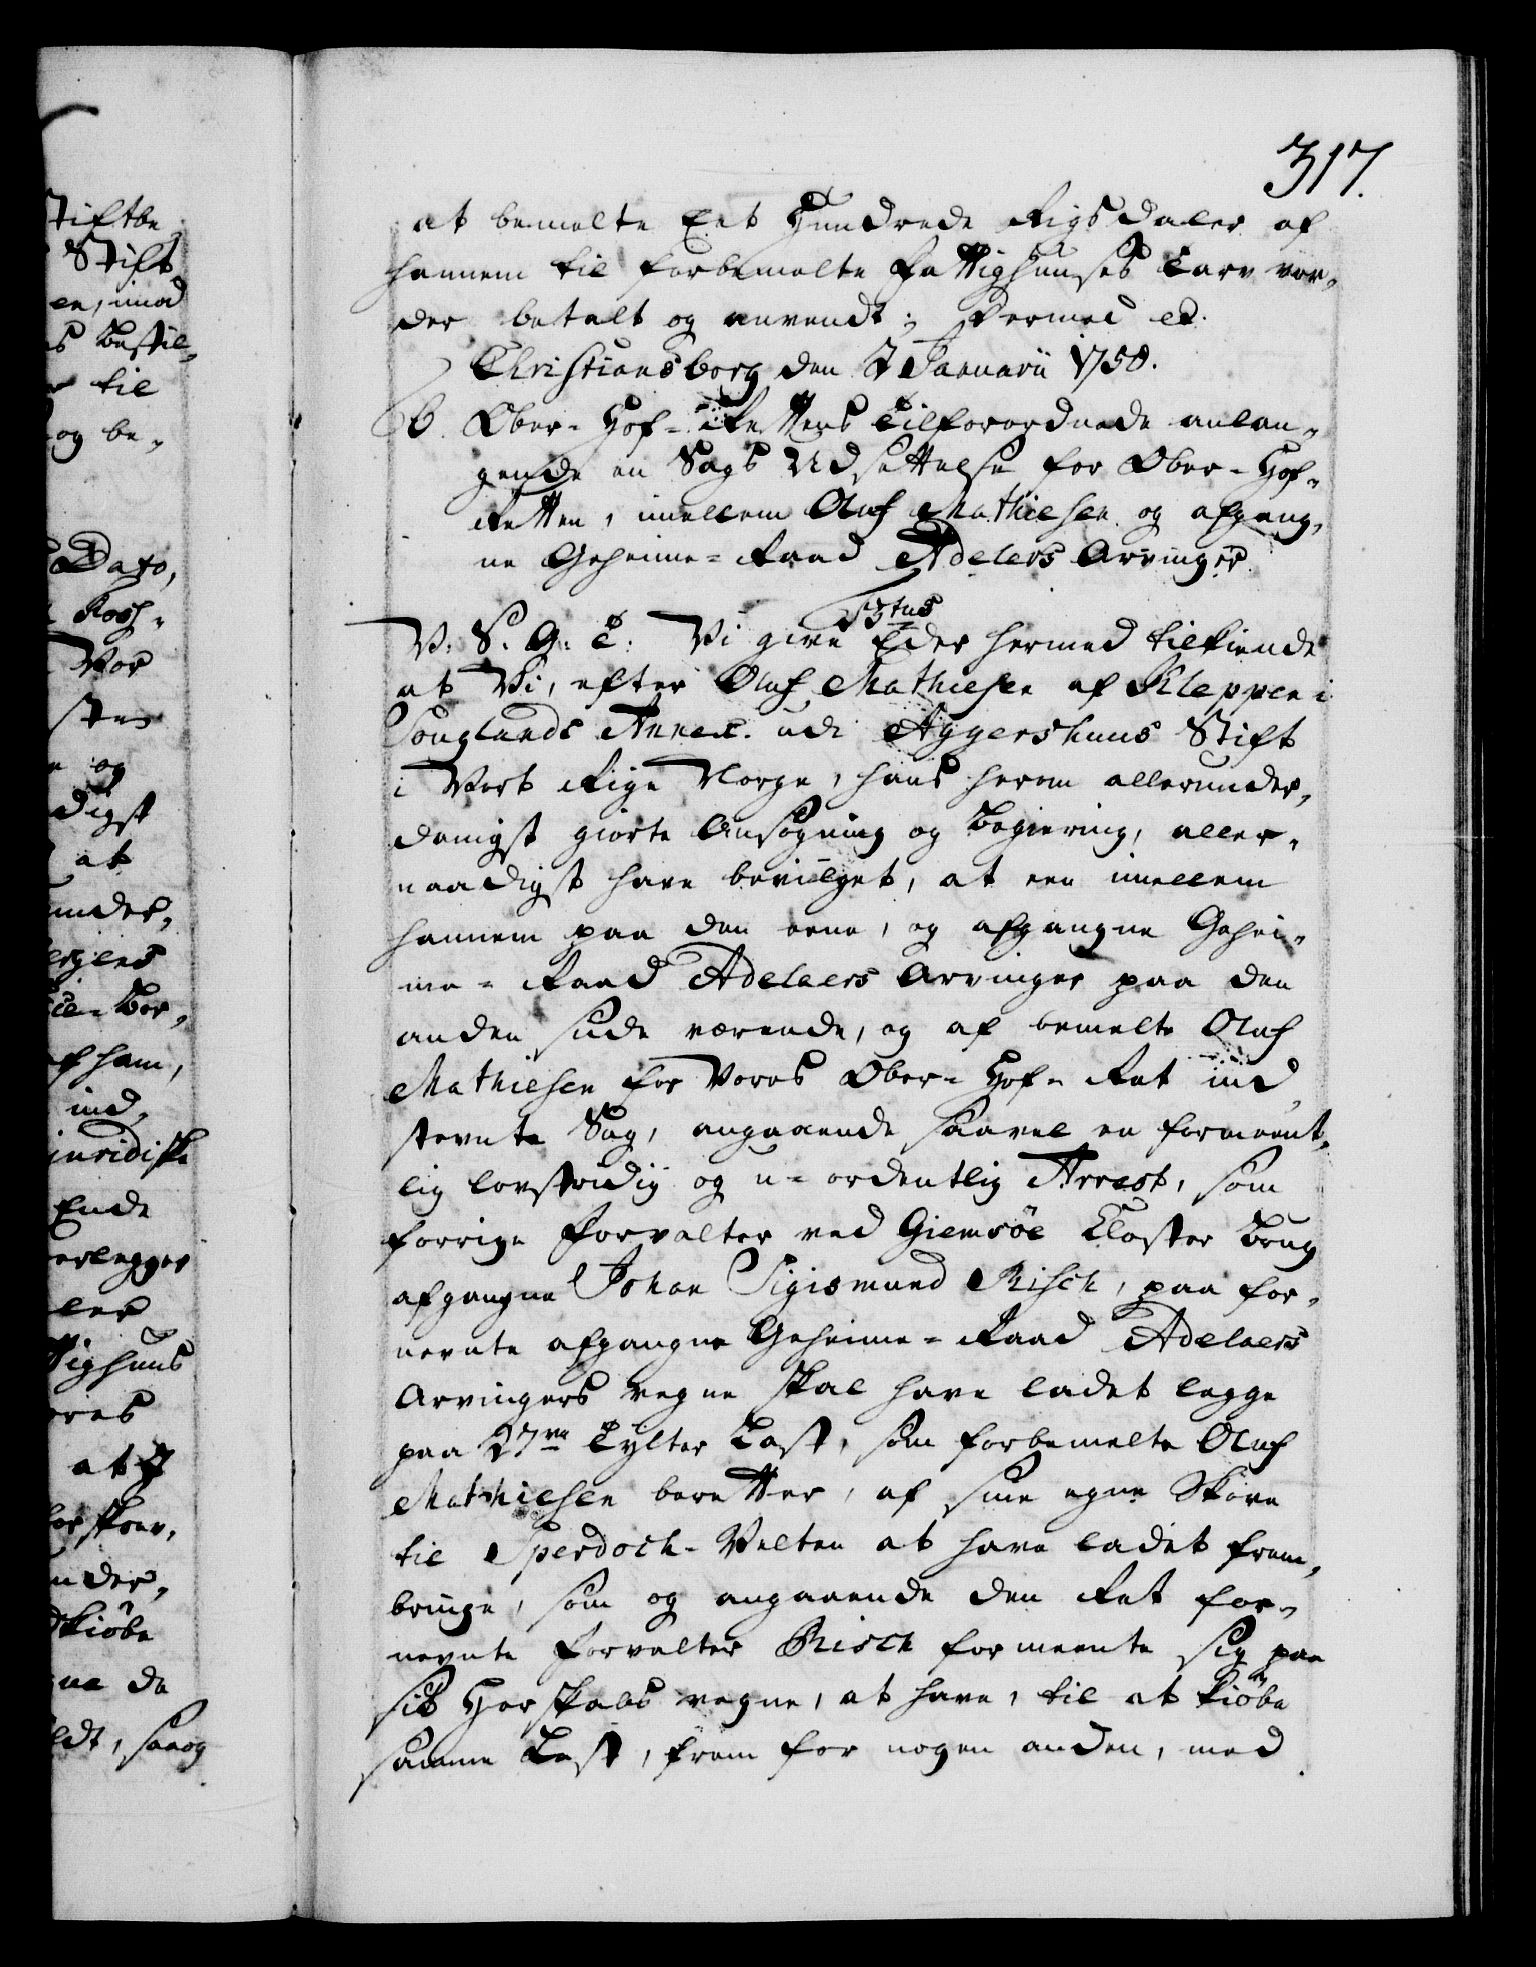 317.
at bemelte Eet Hundrede Rigsdaler af
hannem til forbemelte Fattighuuses Tarv vor-
der betalt og anvendt; Dermed etc.
Christiansborg den 7 Januarii 1758.
6. Ober-Hof-Rettens Tilforordnede anlan-
gende en Sags Udsættelse for Ober-Hof-
Retten, imellem Oluf Mathiesen og afgang-
ne Geheime-Raad Adelers Arvinger.
F 5tus
V. S. G. T. Vi give Eder hermed tilkiende
at Vi, efter Oluf Mathiesen af Kleppen i
Souglands Annex udi Aggershuus Stift
i Vort Rige Norge, hans herom allerunder-
danigst giorte Ansøgning og Begiering, aller-
naadigst have bevilget, at een imellem
hannem paa den eene, og afgangne Gehei-
me-Raad Adelaers Arvinger paa den
anden Siide værende, og af bemelte Oluf
Mathiesen for Vores Ober-Hof-Ret ind-
stevnte Sag, angaaende saavel en formeent-
lig lovstridig og u-ordentlig Arrest, som
forrige Forvalter ved Giemsöe Closter Brug
afgangne Johan Sigismund Risch, paa for-
nevnte afgangne Geheime-Raad Adelaers
Arvingers vegne skal have ladet legge
paa 27ve Tylter Last, som forbemelte Oluf
Mathiesen beretter, af sine egne Skove
til Sperdoch-Velten at have ladet frem-
bringe, som og angaaende den Ret for-
nevnte Forvalter Risch formeente sig paa
sit Herskabs vegne, at have, til at kiöbe
samme Last, frem for nogen anden, med